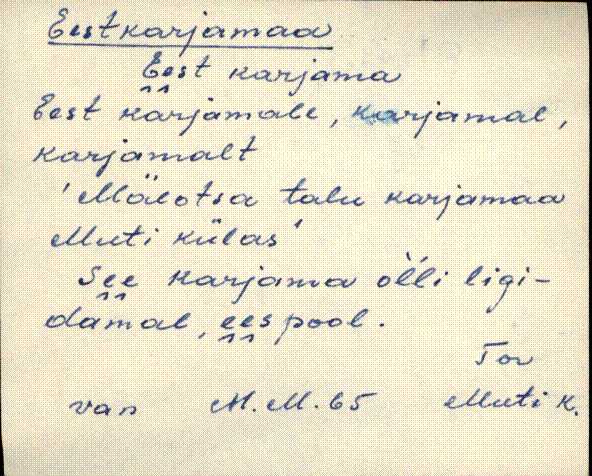 Eestkarjamaa
Eest karjama
Eest karjamale, karjamal,
karjamalt
'Mäeotsa talu karjamaa
Muti külas'
See karjama ol̀li ligi-
damal, eespool.
Tor
van M.M. 65 Muti k.